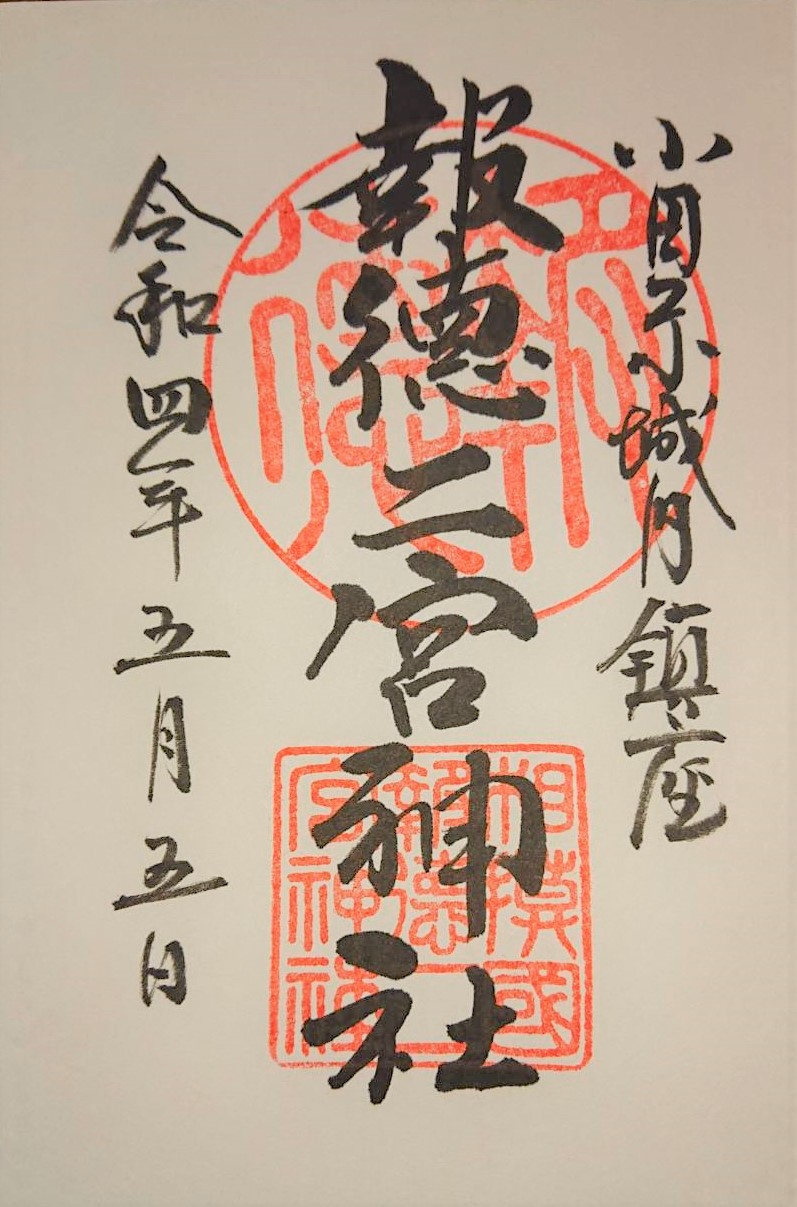 小田原城内鎮座
報徳二宮神社
令和四年五月五日
相模國
報徳二
宮神社